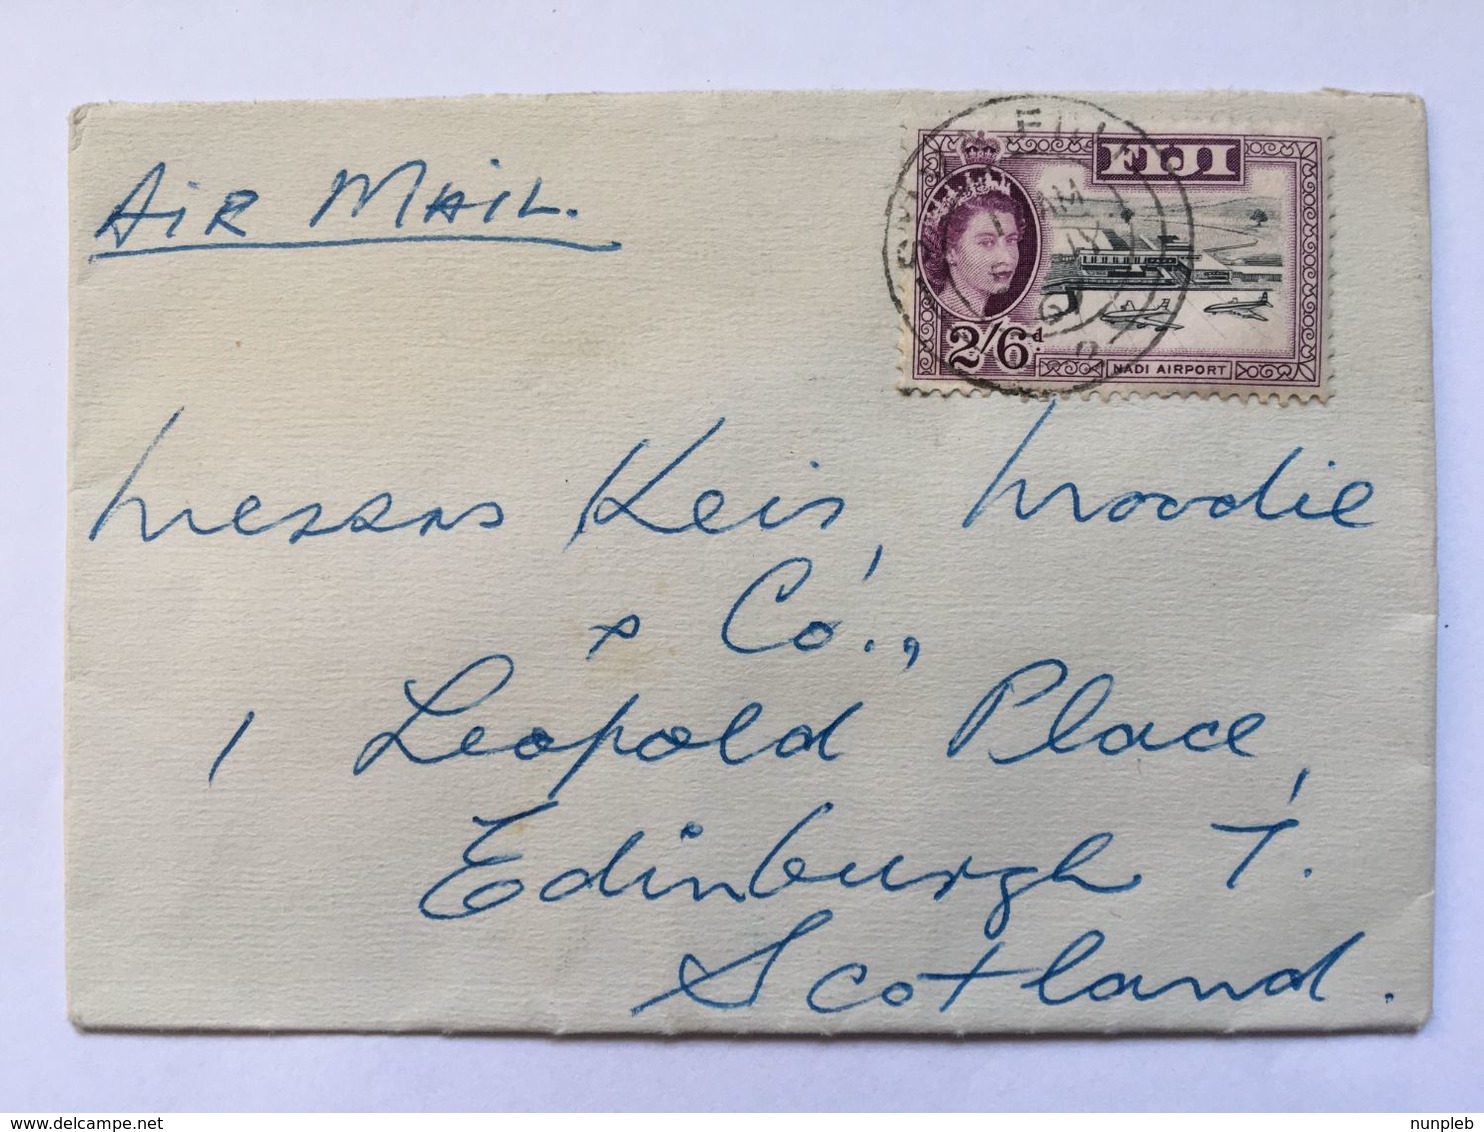 AIR MAIL.
FIJI
AM
2/6d.
NADI AIRPORT
Messrs Keir, Moodie
& Co.,
1 Leopold Place,
Edinburgh 7.
Scotland.
delcampe.net
nunpleb